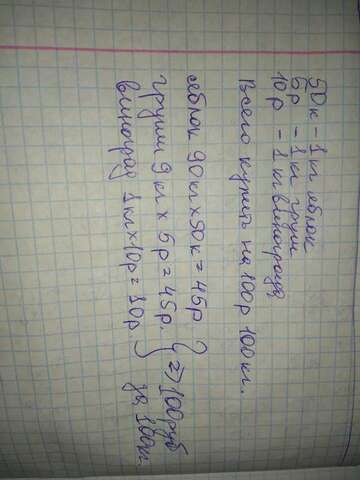 50к - 1кг яблок
5р - 1кг груш
10р - 1кг винограда
Всего купить на 100р 100кг.
яблок 90кг x 50к = 45р
груши 9кг x 5р = 45р. } => 100руб
виноград 1кг x 10р = 10р за 100кг